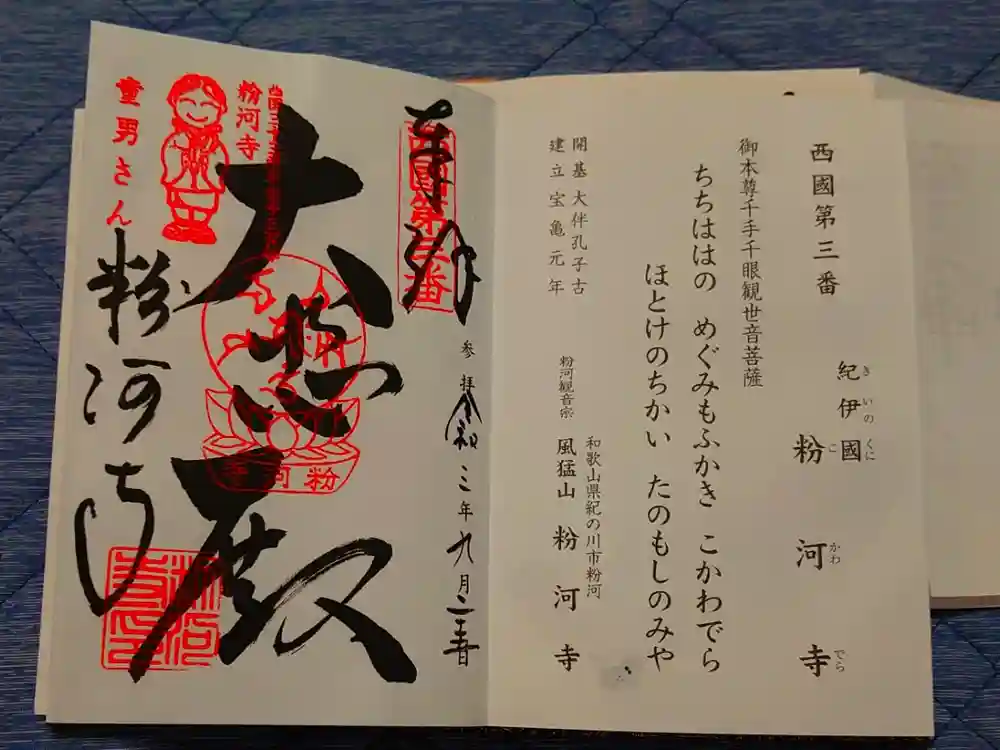 西國第三番
紀伊國
きいのくに
粉河寺
こかわでら
御本尊千手千眼観世音菩薩
ちちははの めぐみもふかき こかわでら
ほとけのちかい たのもしのみや
開基 大伴孔子古
建立 宝亀元年
和歌山県紀の川市粉河
粉河観音宗 風猛山 粉河寺
奉拝
西国第三番
参拝 令和三年九月
大悲殿
粉河寺
粉河寺
粉河寺
童男さん